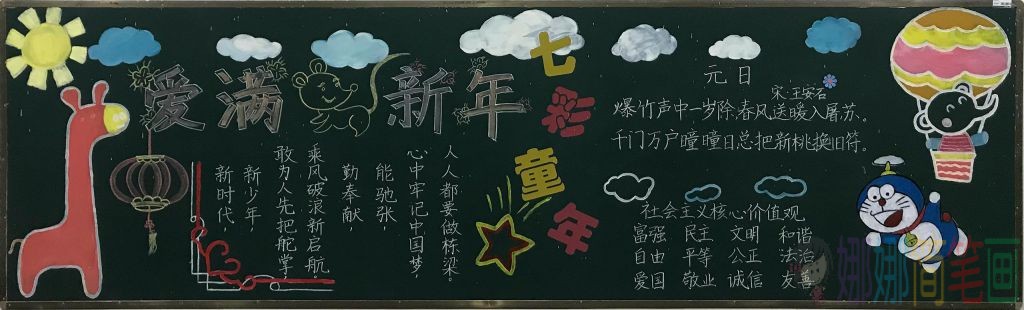 爱满新年
新时代,
新少年,
敢为人先把舵掌,
乘风破浪新启航,
勤奉献,
能驰张,
心中牢记中国梦,
人人都要做栋梁。
七彩童年
元日
宋:王安石
爆竹声中一岁除,春风送暖入屠苏。
千门万户瞳瞳日总把新桃换旧符。
社会主义核心价值观
富强 民主 文明 和谐
自由 平等 公正 法治
爱国 敬业 诚信 友善
娜娜简笔画